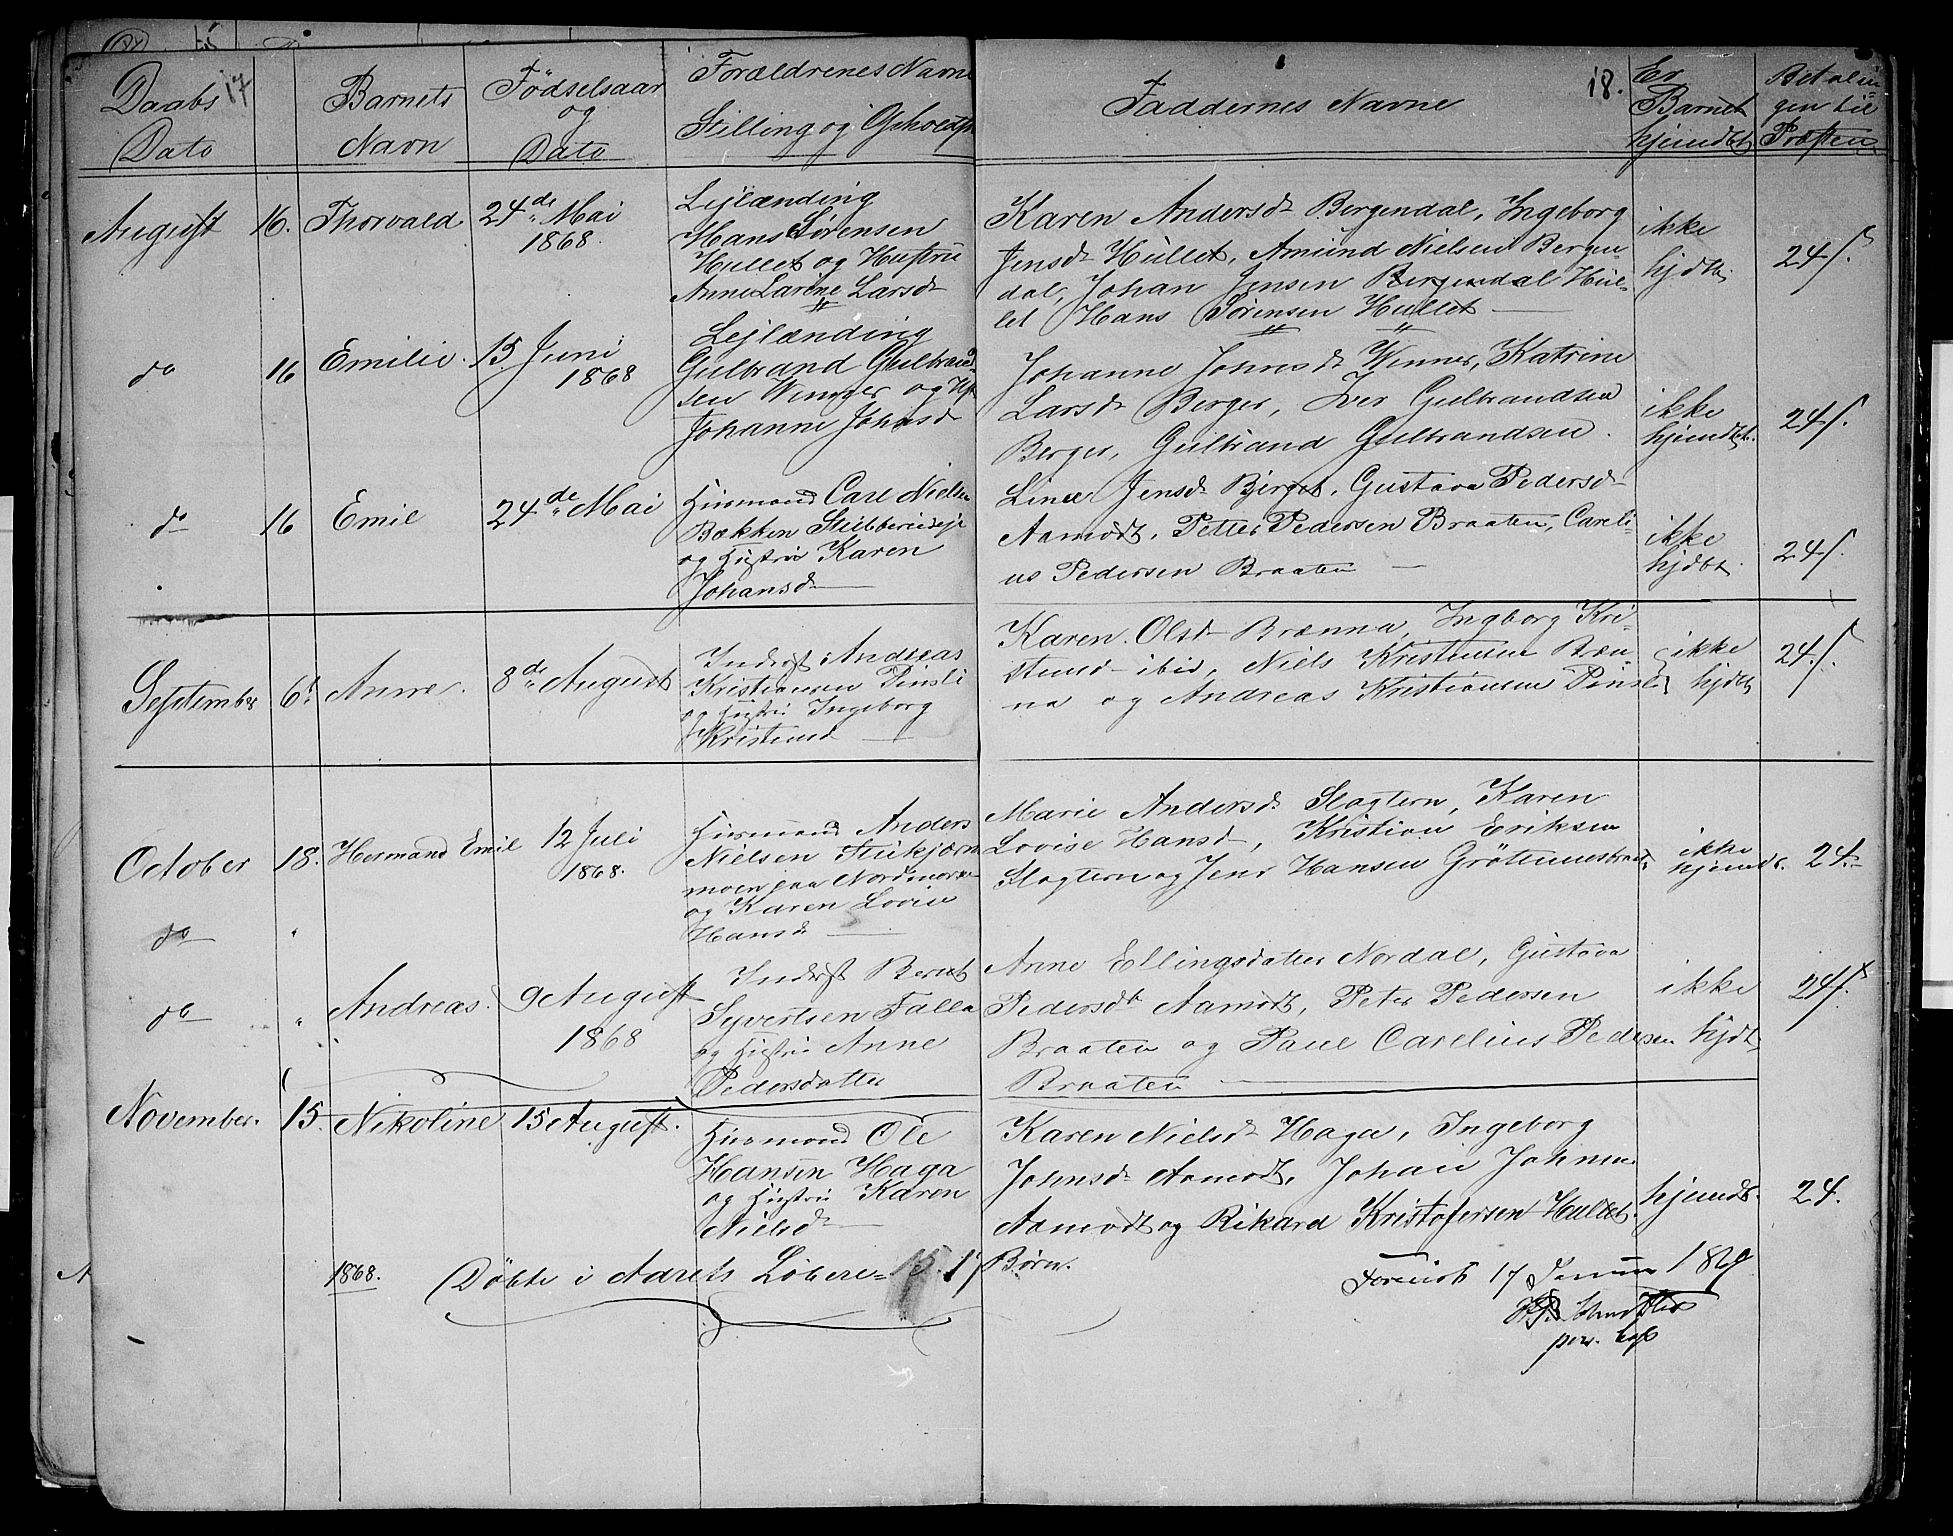 17
Daabs Dato
Barnets Navn
Fødselsaar og Dato
Forældrenes Navne
Stilling og
18.
Faddernes Navne
Er Barnet hjemdøbt
Betalingen til Præsten
August 16. Thorvald. 24de Mai 1868.
Lejlænding
Hans Sørensen
Hullet og Hustru
Anne Larine Larsd
Karen Andersd Bergendal, Ingeborg
Jensd Hullet, Amund Nielsen Bergen-
dal, Johan Jensen Bergendal Hul-
let Hans Sørensen Hullet
ikke
hjdbt
24 s.
do 16 Emilie. 15. Juni 1868
Lejlænding
Gulbrand Gulbrand-
sen Winger og H
Johanne Johnsd
Johanne Johnsd Winner, Katrine
Larsd Berger, Iver Gulbrandsen
Berger, Gulbrand Gulbrandsen.
ikke
hjemdbt.
24 s.
do 16 Emil 24de Mai
Husmand Carl Nielsen
Bækken Stubberudeje
og Hustru Karen
Johansd
Line Jensd Berget, Gustava Pedersd
Aamodt, Petter Pedersen Braaten, Careli-
us Pedersen Braaten
ikke
hjdbt
24 s.
September 6. Anne. 8de August
Inderst Andreas
Kristiansen Pinsli
og Hustru Ingeborg
Kristensd
Karen Olsd Brænna, Ingborg Kri-
stensd ibid, Niels Kristensen Bræn-
na og Andreas Kristiansen Pinsli
ikke
hjdbt
24 s.
October 18. Hermand Emil 12 Juli 1868.
Husmand Anders
Nielsen
moen paa Nordmarken
og Karen Lovise
Hansd
Marie Andersd. Slagtern, Karen
Lovise Hansd, Kristian Eriksen
Slagtern og Jens Hansen
ikke
hjemdb.
24.
do
do Andreas. 9 August 1868
Inderst Bernt
Syvertsen Falla
og Hustru Anne
Pedersdatter
Anne Ellingsdatter Nordal, Gustava
Pedersdt Aamodt, Peter Pedersen
Braaten og Paul Carelius Pedersen
Braaten
ikke
hjdt
24 s.
November. 15. Nikoline 15 August.
Husmand Ole
Hansen Haga
og Hustru Karen
Nielsd
Karen Nielsd Haga, Ingeborg
Johnsd Aamodt, Johan Johnsen
Aamodt og Rikard Kristofersen Hullet.
hjemdb.
24.
1868. Døbte i Aarets Løb 17 Børn.
17 Januar 1869